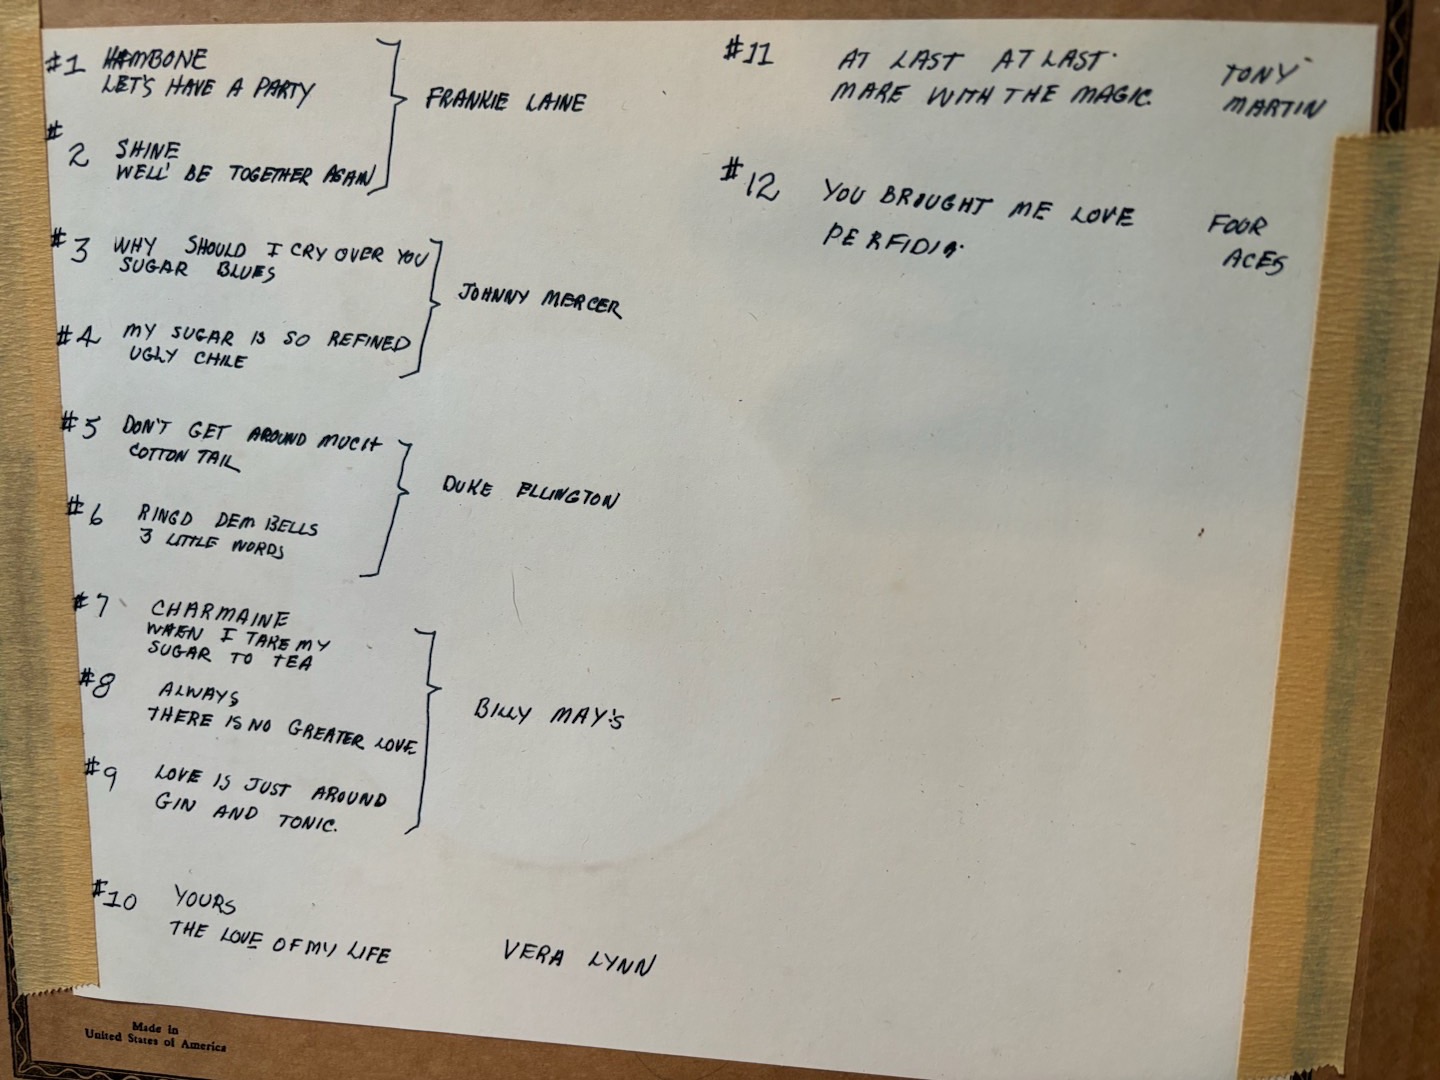 #1 HAMBONE
LET'S HAVE A PARTY
FRANKIE LAINE
#2 SHINE
WELL' BE TOGETHER AGAIN
#3 WHY SHOULD I CRY OVER YOU
SUGAR BLUES
JOHNNY MERCER
#4 MY SUGAR IS SO REFINED
UGLY CHILE
#5 DON'T GET AROUND MUCH
COTTON TAIL
DUKE ELLINGTON
#6 RINGD DEM BELLS
3 LITTLE WORDS
#7 CHARMAINE
WHEN I TAKE MY
SUGAR TO TEA
#8 ALWAYS
THERE IS NO GREATER LOVE
BILLY MAY'S
#9 LOVE IS JUST AROUND
GIN AND TONIC.
#10 YOURS
THE LOVE OF MY LIFE
VERA LYNN
#11 AT LAST AT LAST.
MARE WITH THE MAGIC.
TONY
MARTIN
#12 YOU BROUGHT ME LOVE
PERFIDIA.
FOUR
ACES
Made in
United States of America